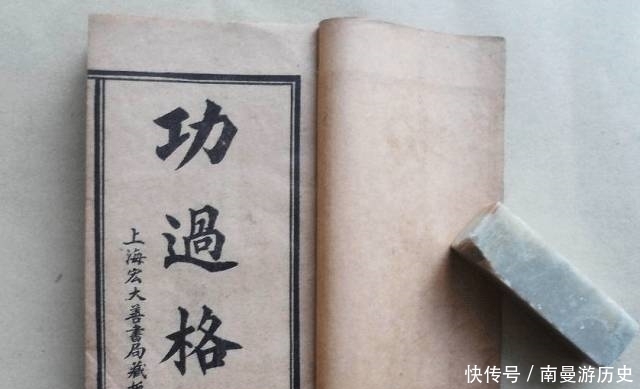 功過格
上海宏大善書局藏板
快传号/南曼游历史